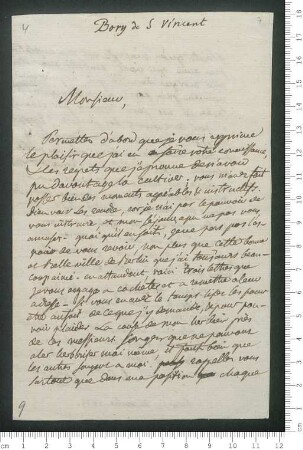 4
Bory de S Vincent
7
Monsieur,
Permettez d'abord que je vous exprime
le plaisir que j'ai eu a faire votre connaissance
Les regrets que j'éprouve de n'avoir
pu davantage la cultiver. vous m'avez fait
passer bien des momens agréables & instructifs
bien vous les rendre, car je n'ai pas le pouvoir de
vous instruire et mon séjour a pu ne pas vous
ennuyer. quoi qu'il en soit, je ne perds pas l'es-
poir de vous revoir non plus que cette bonne
et belle ville de Berlin que j'ai toujours beau-
coup aimé. en attendant voici trois lettres que
je vous engage a cacheter et a remettre a leur
adresse. Si vous en avez le temps lisez les pour
être au fait de ce que j'y demande, & pour pou-
voir plaider la cause de mon herbier près
de ces messieurs. Songez que ne pouvant
aler herboriser moi même il faut bien que
les autres songent a moi. rappellez vous
surtout que dans ma passion chaque
9